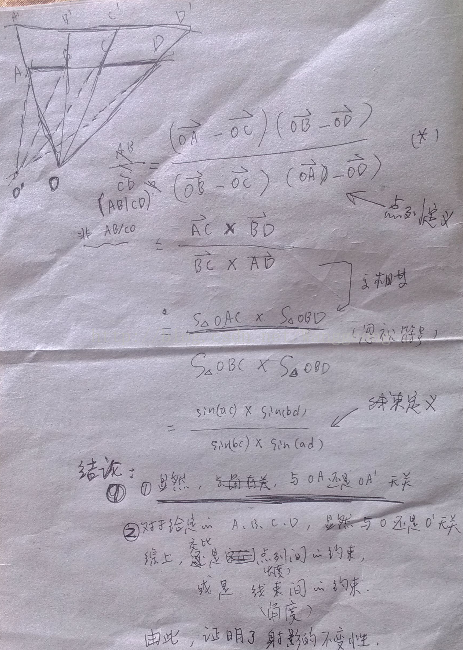 A' B' C' D'
A B C D
O' O
AB/CD (AB/CD) = (OA - OC)(OB - OD) / (OB - OC)(OA - OD) (*)
点列定义
非 AB/CD
= AC × BD / BC × AD
= S△OAC × S△OBD / S△OBC × S△OBD (忽视符号)
= sin(ac) × sin(bd) / sin(bc) × sin(ad)
线束定义
结论:
① 显然, 与OA还是OA'无关
② 对于给定的 A、B、C、D, 显然与O还是O'无关
综上, 交比是点列间的约束,
(长度)
或是 线束间的约束.
(角度)
由此, 证明了射影的不变性.